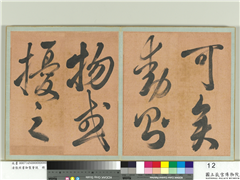 可矣
動則
物或
擾之
12
國立故宮博物院